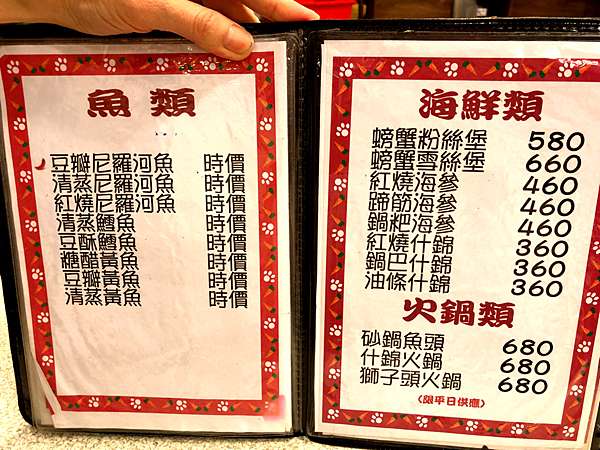 魚類
豆瓣尼羅河魚 時價
清蒸尼羅河魚 時價
紅燒尼羅河魚 時價
清蒸鱈魚 時價
豆酥鱈魚 時價
糖醋黃魚 時價
豆瓣黃魚 時價
清蒸黃魚 時價
海鮮類
螃蟹粉絲堡 580
螃蟹雪絲堡 660
紅燒海參 460
蹄筋海參 460
鍋粑海參 460
紅燒什錦 360
鍋巴什錦 360
油條什錦 360
火鍋類
砂鍋魚頭 680
什錦火鍋 680
獅子頭火鍋 680
(限平日供應)